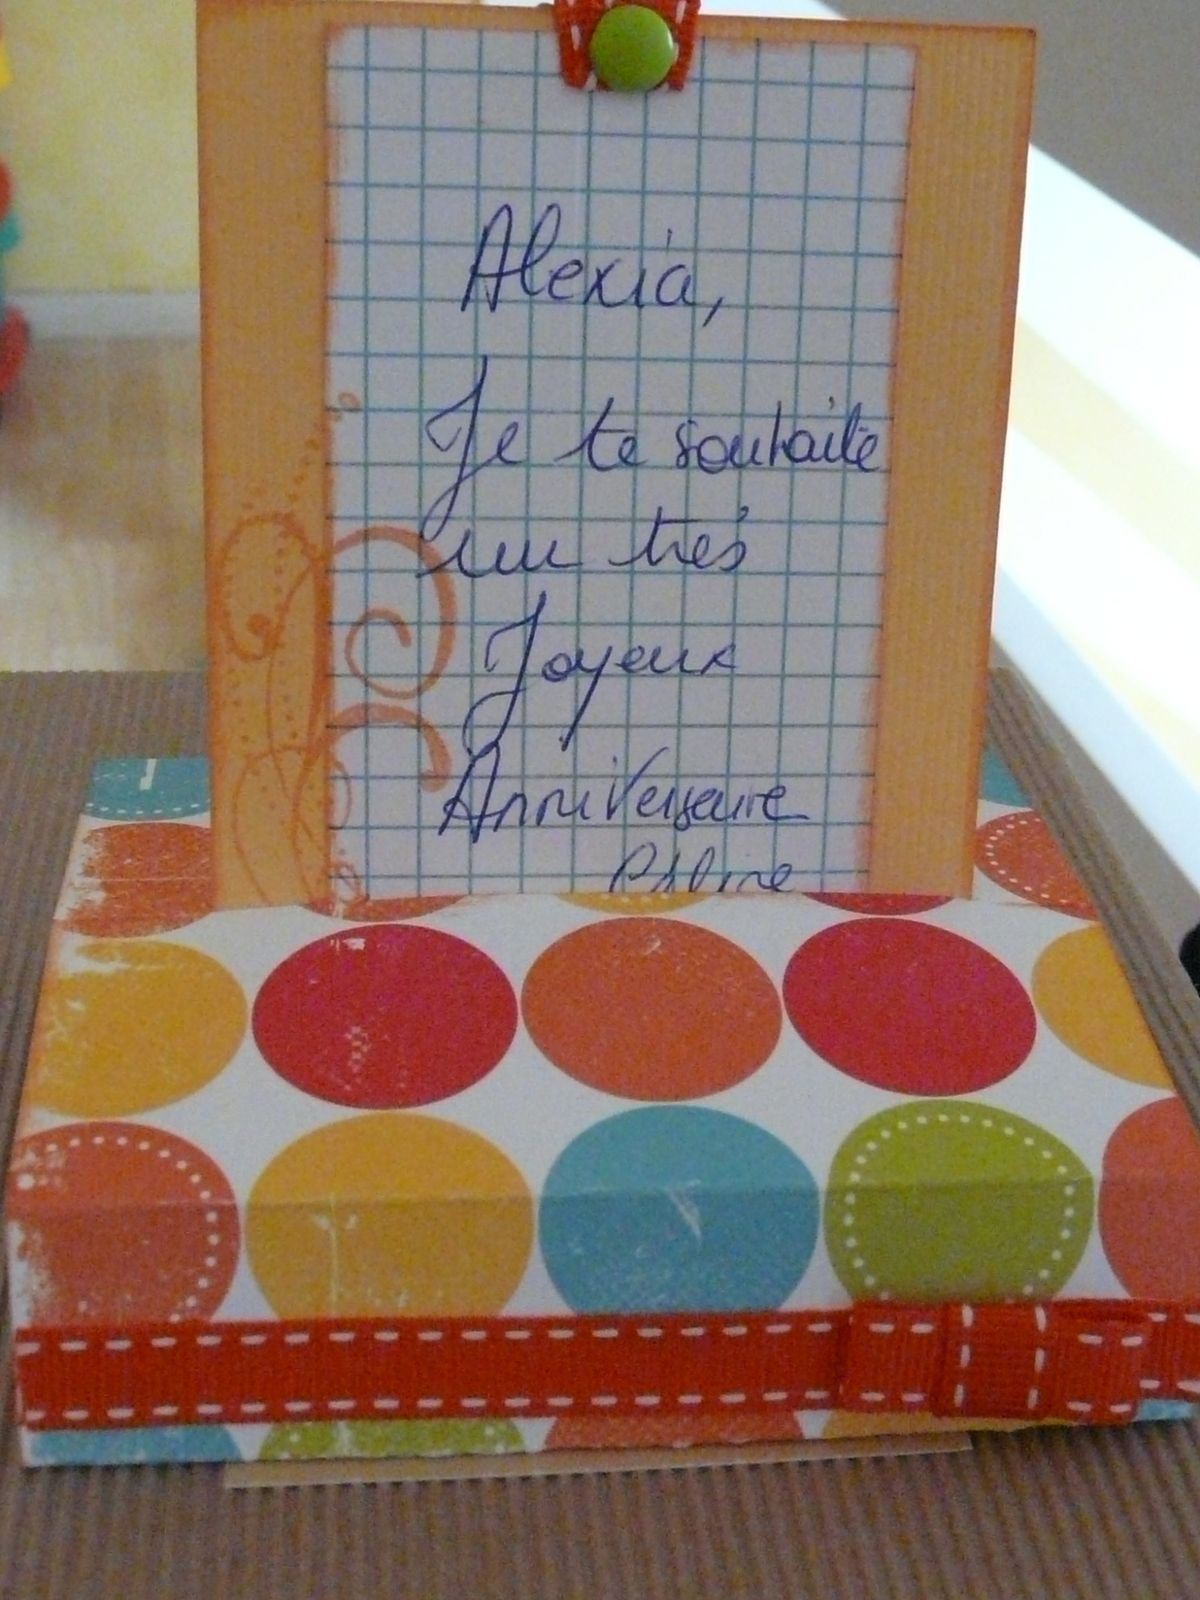 Alexia,
Je te souhaite
un très
Joyeux
Anniversaire